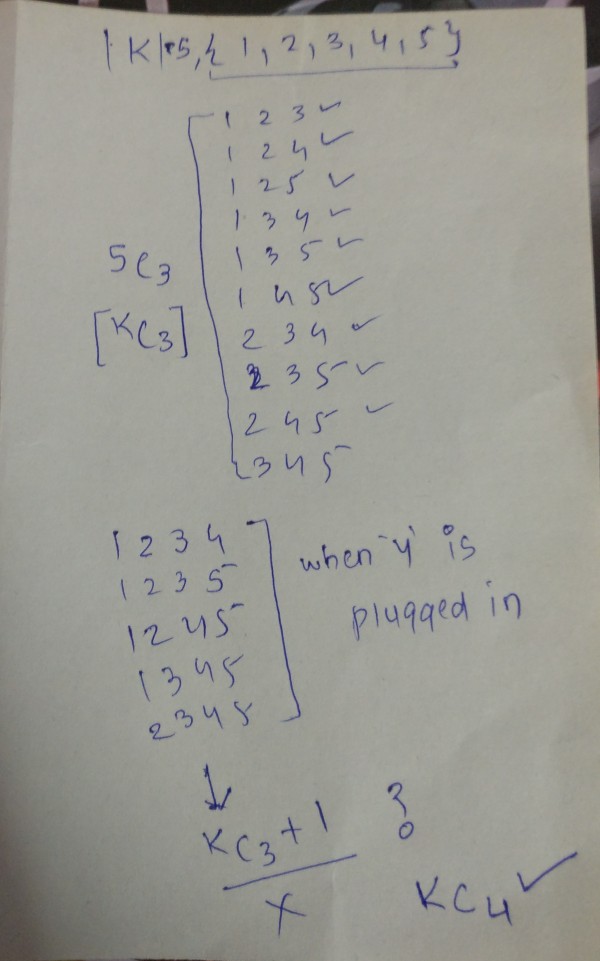 |K|=5, { 1, 2, 3, 4, 5 }
1 2 3 ✓
1 2 4 ✓
1 2 5 ✓
1 3 4 ✓
1 3 5 ✓
1 4 5 ✓
2 3 4 ✓
2 3 5 ✓
2 4 5 ✓
3 4 5
5C3
[KC3]
1 2 3 4
1 2 3 5
1 2 4 5
1 3 4 5
2 3 4 5
when '4' is
plugged in
↓
KC3+1 ?
X
KC4 ✓